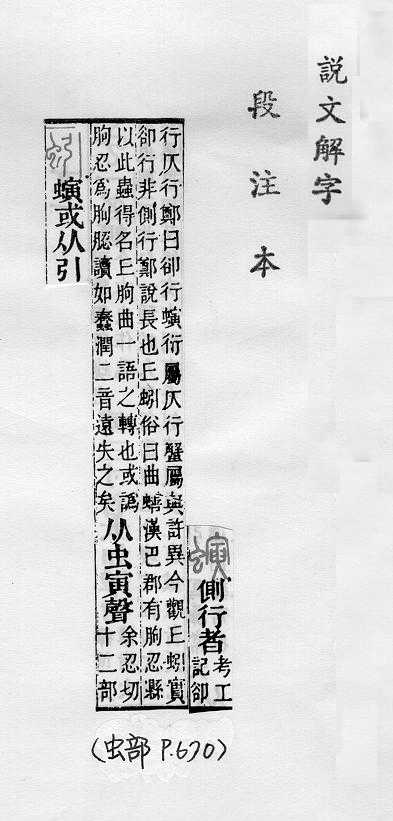 說文解字
段注本
螾 側行者 考工
記卻
行仄行鄭曰卻行螾衍屬仄行蟹屬與許異今觀丘蚓實
卻行非側行鄭說長也丘蚓俗曰曲蟮漢巴郡有朐忍縣
以此蟲得名丘朐曲一語之轉也或譌
朐忍爲朐䏰讀如蠢潤二音遠失之矣
从虫寅聲 余忍切
十二部
蚓 螾或从引
(虫部 P.670)